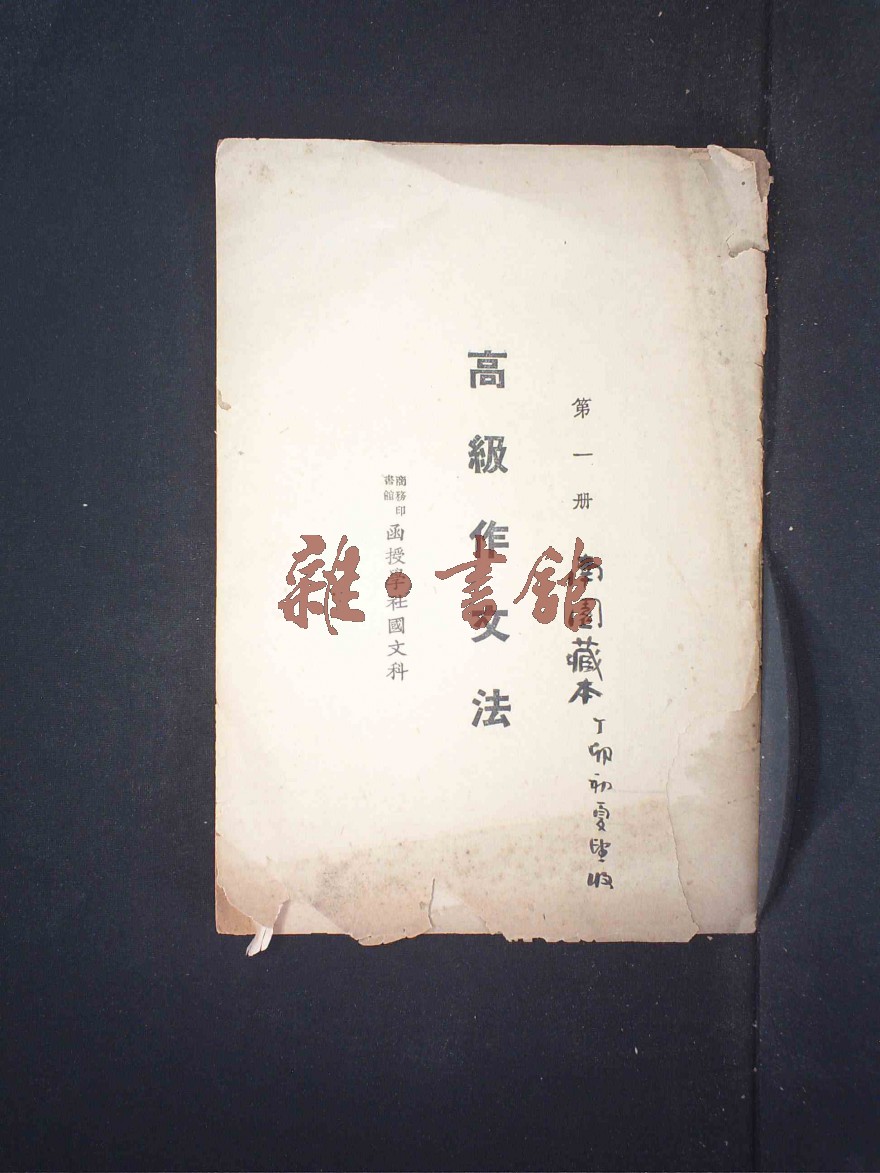 第一册
藏本
丁卯初夏
收
高級作文法
商務印書館
函授學社國文科
雜·書館